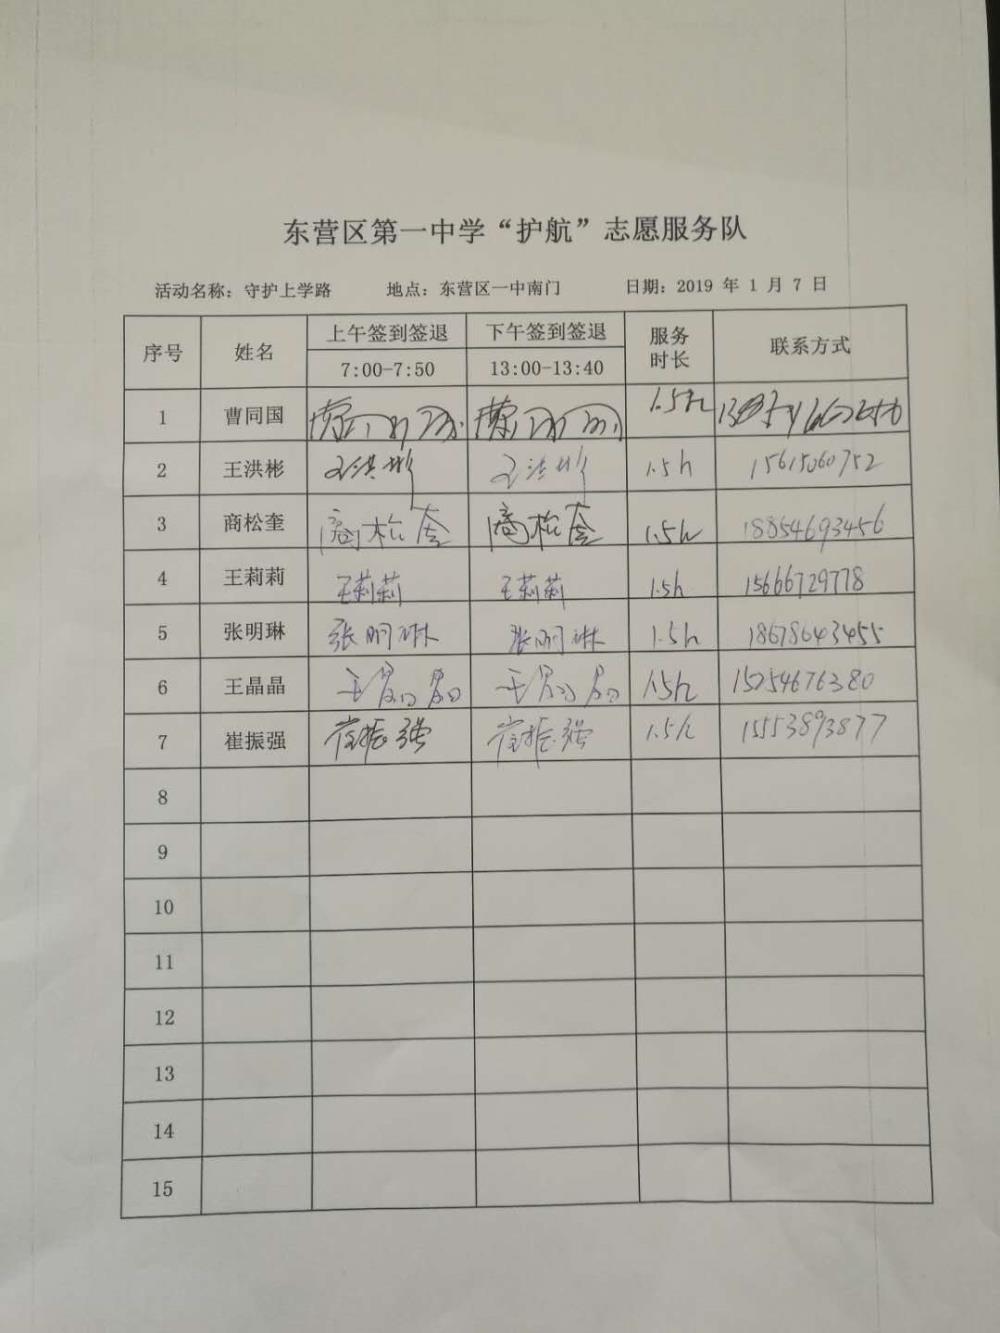 东营区第一中学“护航”志愿服务队
活动名称：守护上学路 地点：东营区一中南门 日期：2019 年 1 月 7 日
序号 姓名 上午签到签退 下午签到签退 服务时长 联系方式
7:00-7:50 13:00-13:40
1 曹同国 1.5h
2 王洪彬 王洪彬 王洪彬 1.5h 15615060752
3 商松奎 商松奎 商松奎 1.5h 18854693456
4 王莉莉 王莉莉 王莉莉 1.5h 15666729778
5 张明琳 张明琳 张明琳 1.5h 18678643455
6 王晶晶 王晶晶 王晶晶 1.5h 15254676380
7 崔振强 崔振强 崔振强 1.5h 15553893877
8
9
10
11
12
13
14
15